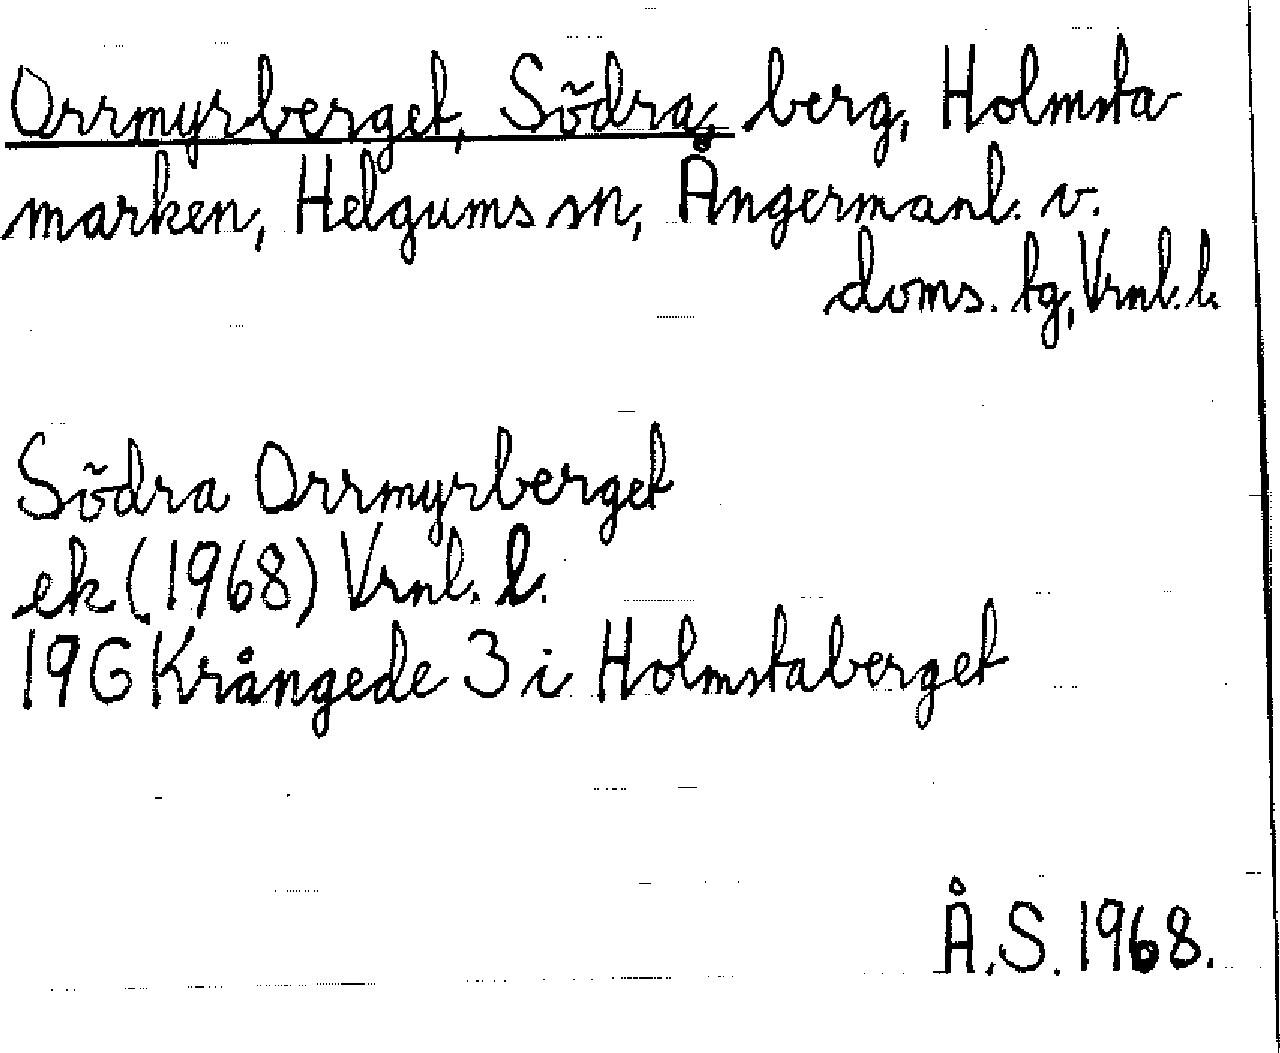 Orrmyrberget, Södra, berg, Holmsta
marken, Helgums sn, Ångermanl. v.
doms. tg, Vrnl. l.
Södra Orrmyrberget
ek (1968) Vrnl. l.
19G Krångede 3 i Holmstaberget
Å.S. 1968.